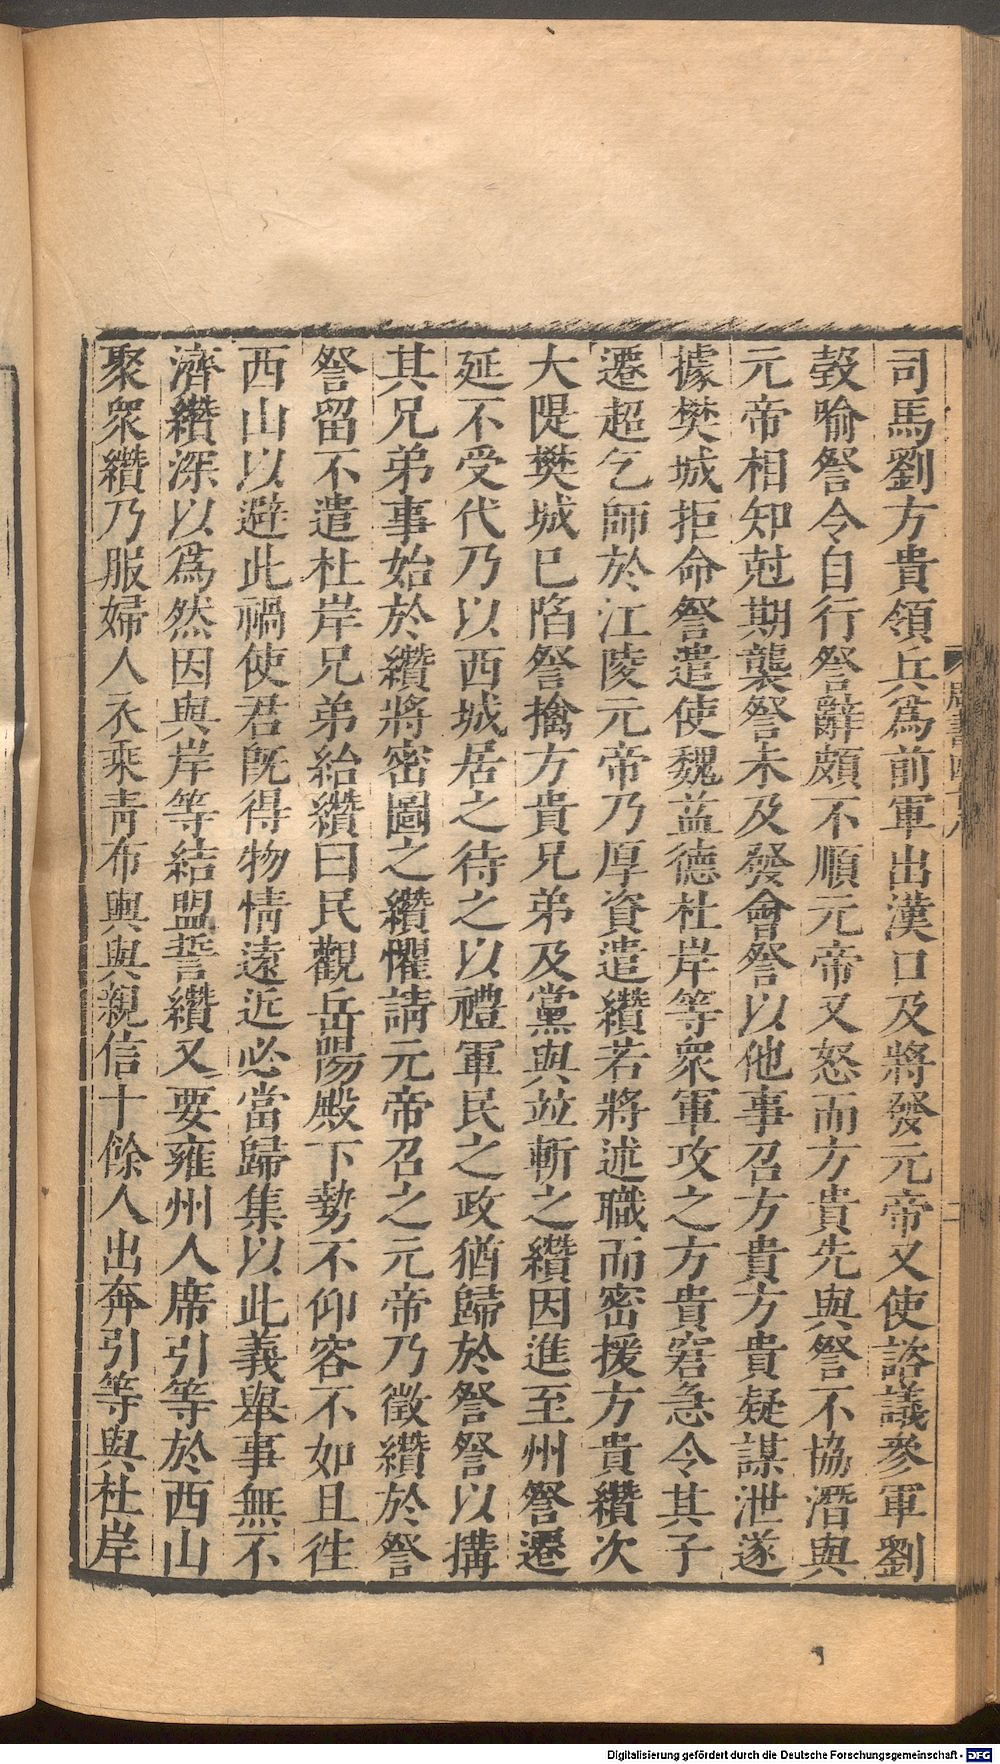 司馬劉方貴領兵爲前軍出漢口及將發元帝又使諮議參軍劉
瑴喻詧令自行詧辭頗不順元帝又怒而方貴先與詧不協潛與
元帝相知尅期襲詧未及發會詧以他事召方貴方貴疑謀泄遂
據樊城拒命詧遣使魏益德杜岸等衆軍攻之方貴窘急令其子
遷超乞師於江陵元帝乃厚資遣纘若將述職而密援方貴纘次
大隄樊城已陷詧擒方貴兄弟及黨與並斬之纘因進至州詧遷
延不受代乃以西城居之待之以禮軍民之政猶歸於詧詧以搆
其兄弟事始於纘將密圖之纘懼請元帝召之元帝乃徵纘於詧
詧留不遣杜岸兄弟紿纘曰民觀岳陽殿下勢不仰容不如且往
西山以避此禍使君旣得物情遠近必當歸集以此義舉事無不
濟纘深以爲然因與岸等結盟誓纘又要雍州人席引等於西山
聚衆纘乃服婦人衣乘青布輿與親信十餘人出奔引等與杜岸
Digitalisierung gefördert durch die Deutsche Forschungsgemeinschaft - DFG